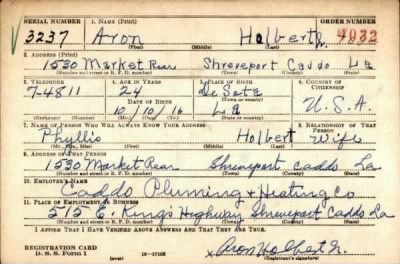 SERIAL NUMBER 1. NAME (Print) ORDER NUMBER
3237 Aron Holbert Jr. 4932
(First) (Middle) (Last)
2. ADDRESS (Print)
1530 Market Rear Shreveport Caddo La
(Number and street or R. F. D. number) (Town) (County) (State)
3. TELEPHONE 4. AGE IN YEARS 5. PLACE OF BIRTH 6. COUNTRY OF CITIZENSHIP
7-4811 24 De Soto
DATE OF BIRTH (Town or county)
10/10/16 La U.S.A.
(Mo.) (Day) (Yr.) (State or country)
7. NAME OF PERSON WHO WILL ALWAYS KNOW YOUR ADDRESS RELATIONSHIP OF THAT PERSON
Phyllis Holbert Wife
(First) (Middle) (Last)
ADDRESS OF THAT PERSON
1530 Market Rear Shreveport Caddo La
(Number and street or R. F. D. number) (Town) (County) (State)
10. EMPLOYER'S NAME
Caddo Pluming & Heating Co
11. PLACE OF EMPLOYMENT OR BUSINESS
515 E. Kings Highway Shreveport Caddo La
(Number and street or R. F. D. number) (Town) (County) (State)
I AFFIRM THAT I HAVE VERIFIED ABOVE ANSWERS AND THAT THEY ARE TRUE.
REGISTRATION CARD
D. S. S. Form 1 Aron Holbert Jr.
(Registrant's signature)